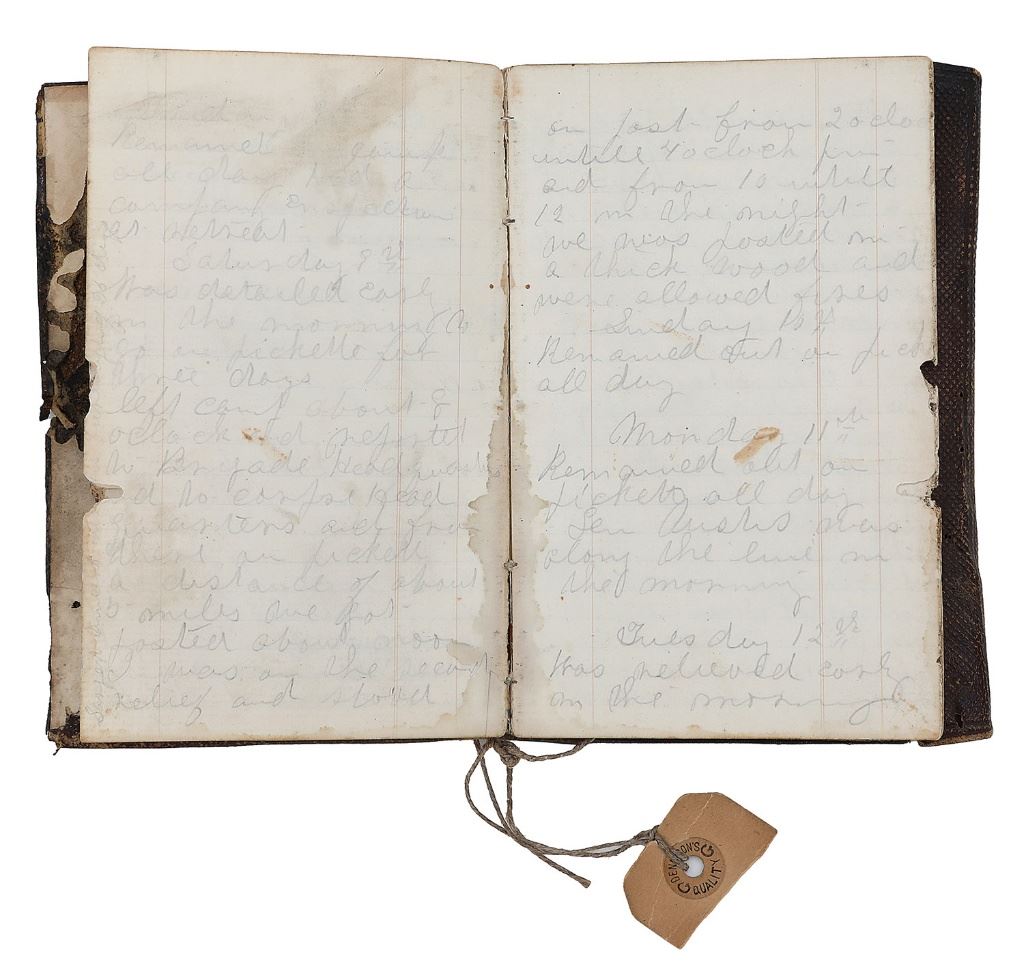 Remained in camp
all day had a
company Inspection
at retreat
Saturday 9th
Was detailed early
in the morning to
go on picketts for
three days
left camp about 8
oclock and reported
to Brigade Headquarters
d to corps Head
quarters and from
there on pickett
a distance of about
5 miles we got
posted about noon
I was on the second
relief and stood
on post from 2 oclo
untill 4 oclock pm
and from 10 untill
12 in the night
we was posted in
a thick wood and
were allowed fires
Sunday 10th
Remained out on pick
all day
Monday 11th
Remained out on
pickett all day
Gen was
along the line in
the morning
Tuesday 12th
Was relieved early
in the morning
DENNISON'S
QUALITY